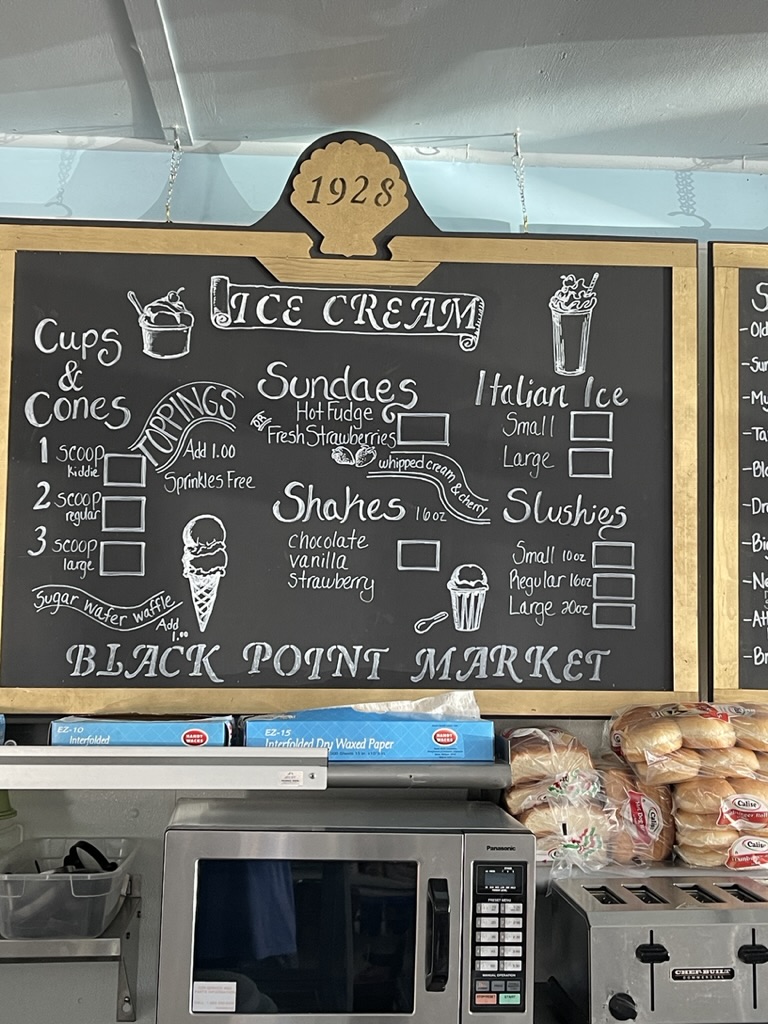 1928
ICE CREAM
Cups
&
Cones
1 scoop
kiddie
2 scoop
regular
3 scoop
large
Sugar wafer waffle
Add
1.00
TOPPINGS
Add 1.00
Sprinkles Free
Sundaes
Hot Fudge
Fresh Strawberries
whipped cream & cherry
Shakes 16oz
chocolate
vanilla
strawberry
Italian Ice
Small
Large
Slushies
Small 10oz
Regular 16oz
Large 20oz
BLACK POINT MARKET
EZ-10
Interfolded
HANDY WACKS
EZ-15
Interfolded Dry Waxed Paper
HANDY WACKS
Panasonic
CHEF-BUILT
COMMERCIAL
Calise